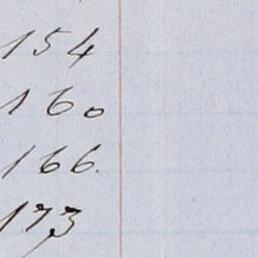 154
160
166.
173